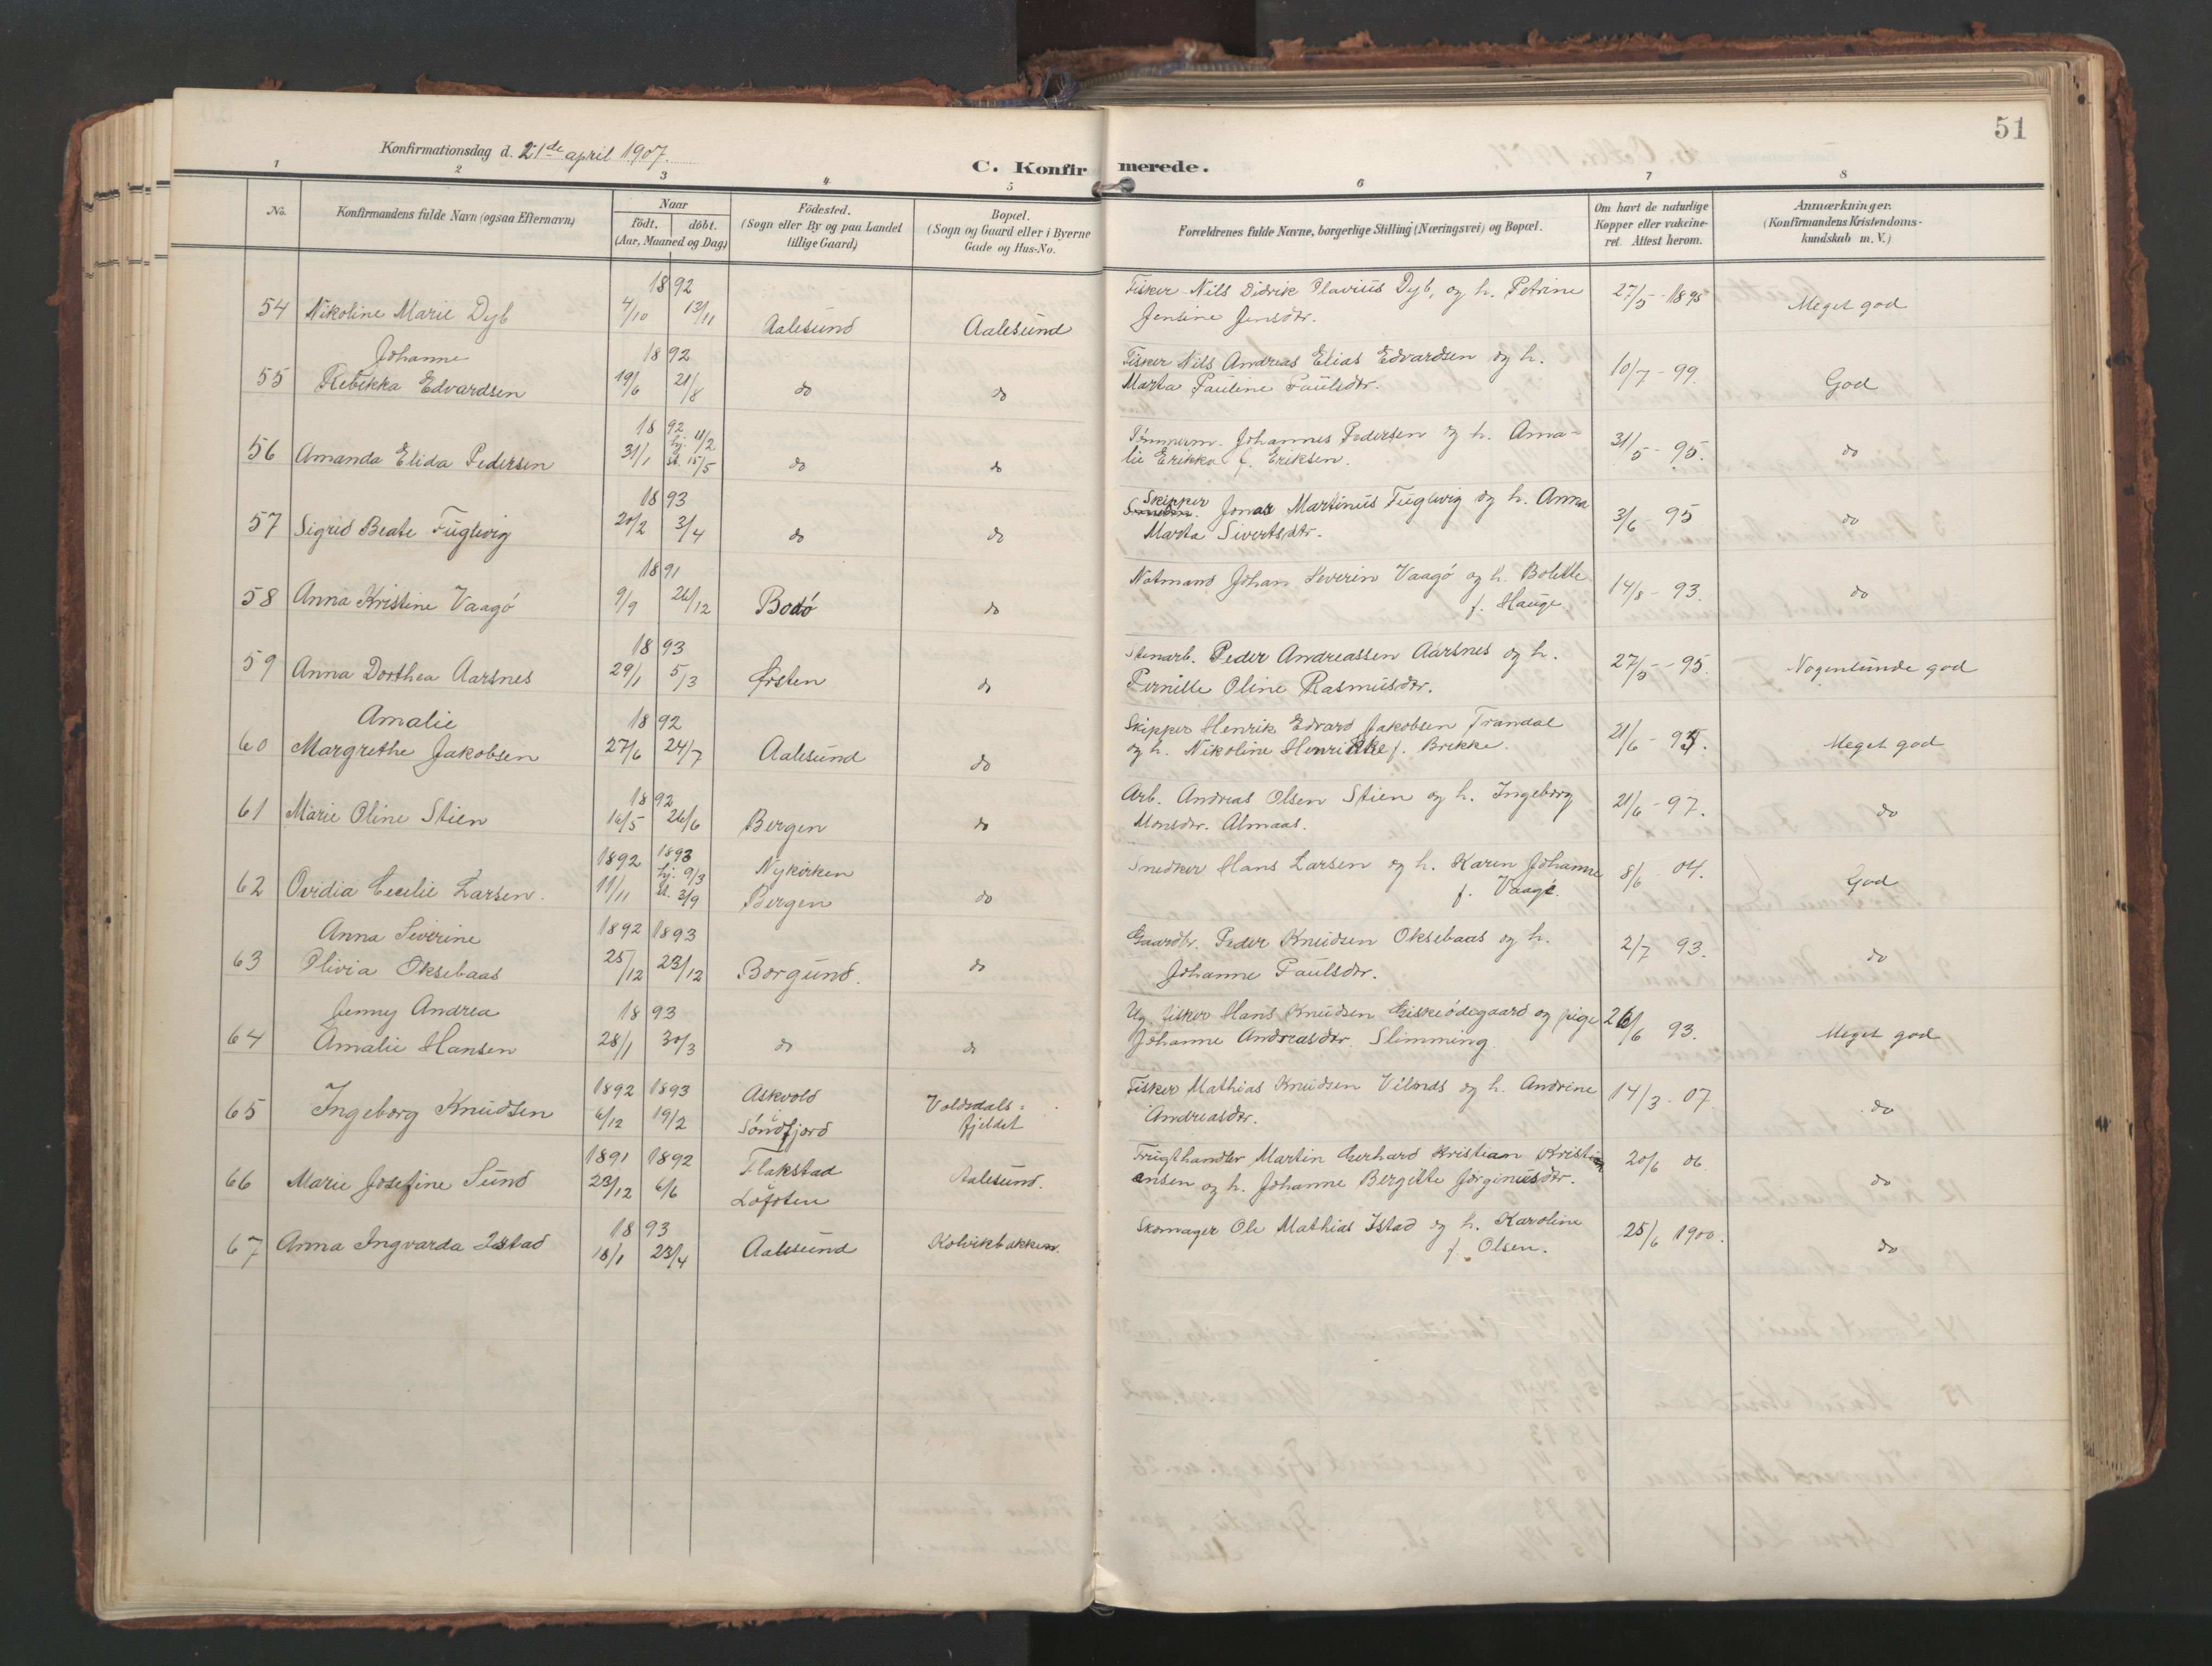 51
Konfirmationsdag d. 21de april 1907.
C. Konfirmerede.
1 2 3 4 5 6 7 8
No.
Konfirmandens fulde Navn (ogsaa Efternavn)
Naar
født. døbt.
(Aar, Maaned og Dag)
Fødested.
(Sogn eller By og paa Landet
tillige Gaard)
Bopæl.
(Sogn og Gaard eller i Byerne
Gade og Hus-No.
Forældrenes fulde Navne, borgerlige Stilling (Næringsvei) og Bopæl.
Om havt de naturlige
Kopper eller vakcine-
ret. Attest herom.
Anmærkninger.
(Konfirmandens Kristendoms-
kundskab m. V.)
1892
Fisker Nils Didrik Olavius Dyb, og h. Petrine
54 Nikoline Marie Dyb 4/10 13/11 Aalesund Aalesund Jensine Jensdtr. 27/5 - 1895 Meget god
Johanne 1892 Fisker Nils Andreas Elias Edvardsen og h.
55 Rebekka Edvardsen 19/6 21/8 do do Marta Pauline Paulsdtr. 10/7 - 99. God
1892 Tømmerm. Johannes Pedersen og h. Ama-
56 Amanda Elida Pedersen 31/1 hj. 11/2 st. 15/5 do do lie Erikka f. Eriksen. 31/5 - 95. do
1893 Skipper Jonas Martinus Fuglevig og h. Anna
57 Sigrid Beate Fuglevig 20/2 3/4 do do Marta Sivertsdtr. 3/6 - 95 do
1891 Notmand Johan Severin Vaagø og h. Bolette
58 Anna Kristine Vaagø 9/9 26/12 Bodø do f. Hauge 14/8 - 93. do
1893 Stenarb. Peder Andreassen Aarsnes og h.
59 Anna Dorthea Aarsnes 29/1 5/3 Ørsten do Pernille Oline Rasmusdtr. 27/5 - 95. Nogenlunde god
Amalie 1892 Skipper Henrik Edvard Jakobsen Trandal
60 Margrethe Jakobsen 27/6 24/7 Aalesund do og h. Nikoline Henrikke f. Brekke. 21/6 - 95. Meget god
1892 Arb. Andreas Olsen Stien og h. Ingeborg
61 Marie Oline Stien 16/5 26/6 Bergen do Monsdtr. Almaas. 21/6 - 97. do
1892 1893 Nykirken Snedker Hans Larsen og h. Karen Johanne
62 Ovidia Cecelie Larsen. 11/11 hj. 9/3 st. 3/9 Bergen do f. Vaagø. 8/6 04. God
Anna Severine 1892 1893 Gaardbr. Peder Knudsen Oksebaas og h.
63 Olivia Oksebaas 25/12 23/12 Borgund. do Johanne Paulsdtr. 2/7 93. do
Jenny Andrea 1893 Ug. fisker Hans Knudsen Giskeødegaard og pige
64 Amalie Hansen 28/1 30/3 do do Johanne Andreasdtr. Slimming. 26/6 93. Meget god
1892 1893 Askvold Voldsdals= Fisker Mathias Knudsen Vilnæs og h. Andrine
65 Ingeborg Knudsen 6/12 19/2 Søndfjord fjeldet Andreasdtr. 14/3 - 07. do
1891 1892 Flakstad Frugthandler Martin Gerhard Kristian Kristi
66 Marie Josefine Sund 23/12 6/6 Lofoten Aalesund. ansen og h. Johanne Bergitte Jørginusdtr. 20/6 06. do
1893 Skomager Ole Mathias Istad og h. Karoline
67 Anna Ingvarda Istad 18/1 23/4 Aalesund Kolvikbakken f. Olsen. 25/6 1900. do